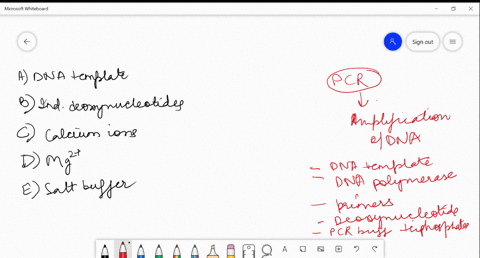 Microsoft Whiteboard
Sign out
A) DNA template
B) Ind. deoxynucleotides
C) Calcium ions
D) Mg2+
E) Salt buffer
PCR
Amplification
of DNA
- DNA template
- DNA polymerase
- primers
- Deoxynucleotide
- PCR buff triphosphate